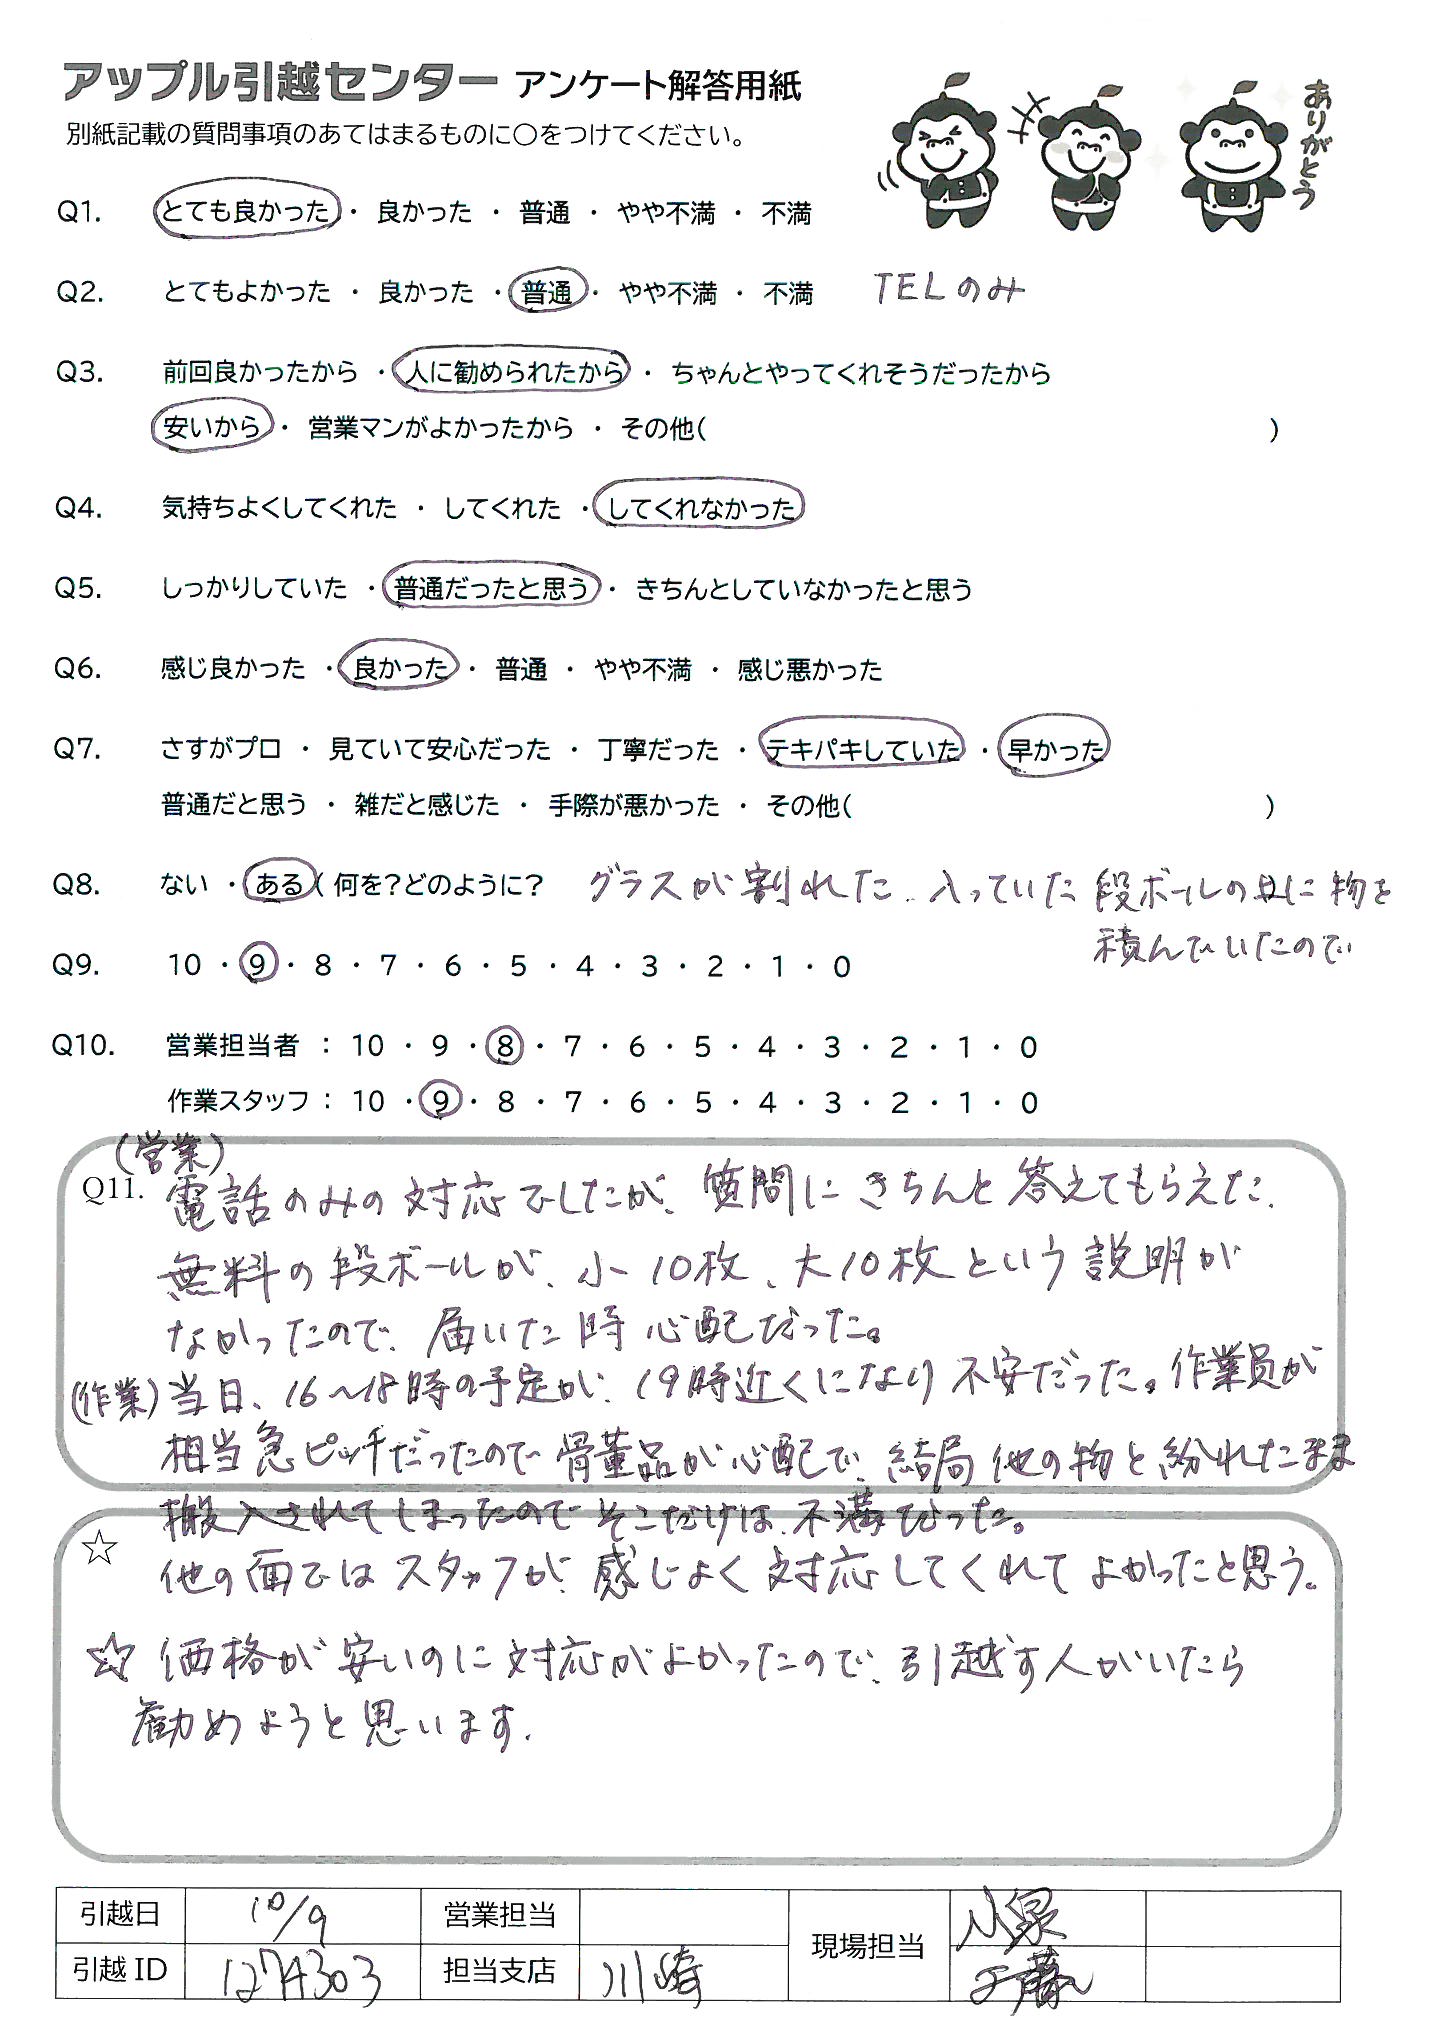 アップル引越センター アンケート解答用紙
別紙記載の質問事項のあてはまるものに○をつけてください。
ありがとう
Q1. とても良かった ・ 良かった ・ 普通 ・ やや不満 ・ 不満
Q2. とてもよかった ・ 良かった ・ 普通 ・ やや不満 ・ 不満 TELのみ
Q3. 前回良かったから ・ 人に勧められたから ・ ちゃんとやってくれそうだったから
安いから ・ 営業マンがよかったから ・ その他( )
Q4. 気持ちよくしてくれた ・ してくれた ・ してくれなかった
Q5. しっかりしていた ・ 普通だったと思う ・ きちんとしていなかったと思う
Q6. 感じ良かった ・ 良かった ・ 普通 ・ やや不満 ・ 感じ悪かった
Q7. さすがプロ ・ 見ていて安心だった ・ 丁寧だった ・ テキパキしていた ・ 早かった
普通だと思う ・ 雑だと感じた ・ 手際が悪かった ・ その他( )
Q8. ない ・ ある ( 何を?どのように? グラスが割れた. 入っていた段ボールの上に物を
積んでいたので
Q9. 10 ・ 9 ・ 8 ・ 7 ・ 6 ・ 5 ・ 4 ・ 3 ・ 2 ・ 1 ・ 0
Q10. 営業担当者 : 10 ・ 9 ・ 8 ・ 7 ・ 6 ・ 5 ・ 4 ・ 3 ・ 2 ・ 1 ・ 0
作業スタッフ : 10 ・ 9 ・ 8 ・ 7 ・ 6 ・ 5 ・ 4 ・ 3 ・ 2 ・ 1 ・ 0
(営業)
Q11. 電話のみの対応でしたが、質問にきちんと答えてもらえた.
無料の段ボールが、小10枚、大10枚という説明が
なかったので、届いた時心配だった。
(作業) 当日、16〜18時の予定が、19時近くになり不安だった。作業員が
相当急ピッチだったので骨董品が心配で、結局他の物と紛れたまま
搬入されてしまったのでそこだけは、不満だった。
☆
他の面ではスタッフが、感じよく対応してくれてよかったと思う。
☆ 価格が安いのに対応がよかったので、引越す人がいたら
勧めようと思います.
引越日 10/9 営業担当 現場担当 小泉
引越ID 1274303 担当支店 川崎